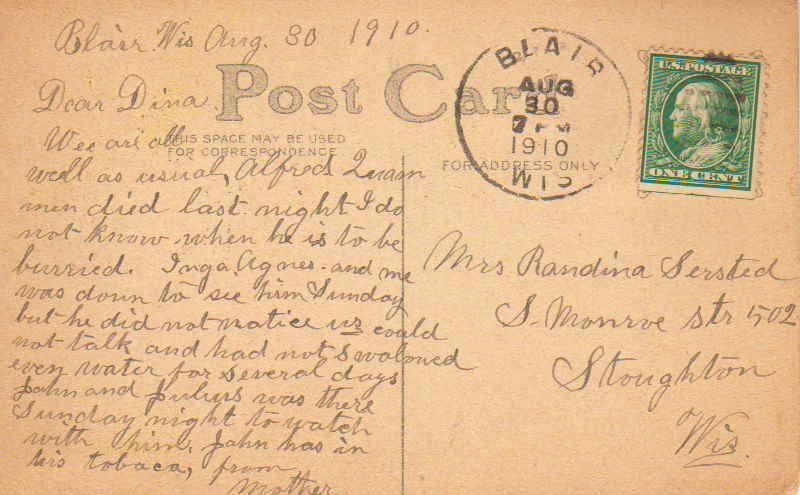 Blair Wis Aug. 30 1910.
Post Card
BLAIR
AUG
30
7 PM
1910
WIS
U.S. POSTAGE
ONE CENT
Dear Dina
THIS SPACE MAY BE USED
FOR CORRESPONDENCE
FOR ADDRESS ONLY
Wee are all
well as usual, Alfred Quam
men died last night I do
not know when he is to be
burried. Inga. Agnes. and me
was down to see him Sunday
but he did not notice us could
not talk and had not swalowed
even water for several days
John and Julius was there
Sunday night to watch
with him. John has in
his tobaca, from
Mother
Mrs Randina Sersted
S. Monroe Str 502
Stoughton
Wis.